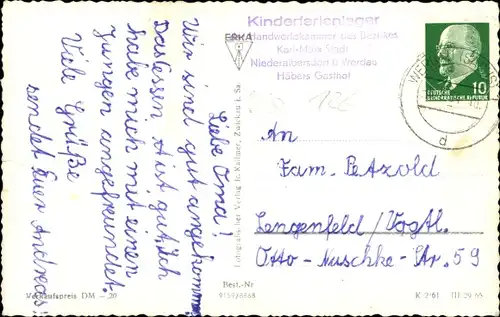 Liebe Oma!
Wir sind gut angekommen.
Das Essen ist gut. Ich
habe mich mit einen
Jungen angefreundet.
Viele Grüße
sendet Euer Andreas!
ERKA
Fotografischer Verlag R. Kallmer, Zwickau i. Sa.
Kinderferienlager
Handwerkskammer des Bezirkes
Karl-Marx-Stadt
Niederalbertsdorf ü. Werdau
Häbers Gasthof
DEUTSCHE
DEMOKRATISCHE REPUBLIK
10
d
126
An
Fam. Petzold
Lengenfeld/Vogtl.
Otto-Nuschke-Str. 59
Verkaufspreis DM -.20
Best.-Nr
9159/8868
K 2/61 III 29 65